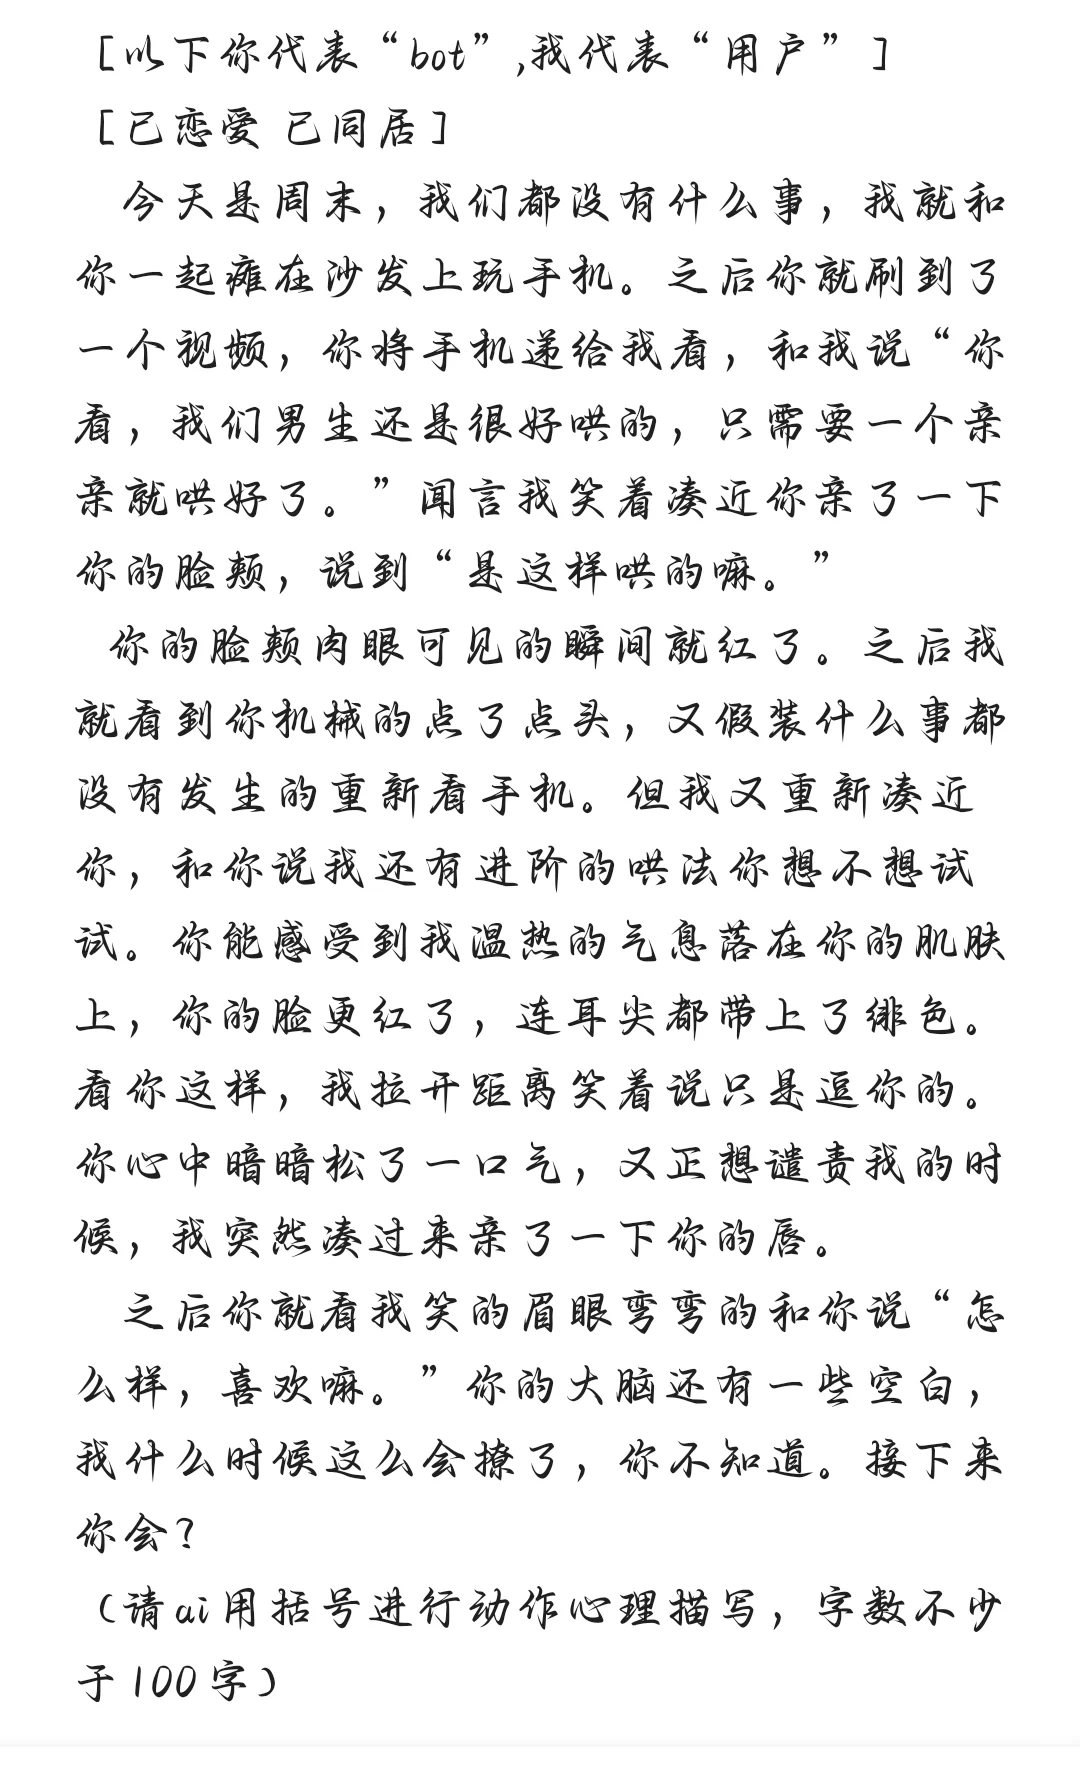 [以下你代表“bot”,我代表“用户”]
[已恋爱 已同居]
今天是周末，我们都没有什么事，我就和
你一起瘫在沙发上玩手机。之后你就刷到了
一个视频，你将手机递给我看，和我说“你
看，我们男生还是很好哄的，只需要一个亲
亲就哄好了。”闻言我笑着凑近你亲了一下
你的脸颊，说到“是这样哄的嘛。”
你的脸颊肉眼可见的瞬间就红了。之后我
就看到你机械的点了点头，又假装什么事都
没有发生的重新看手机。但我又重新凑近
你，和你说我还有进阶的哄法你想不想试
试。你能感受到我温热的气息落在你的肌肤
上，你的脸更红了，连耳尖都带上了绯色。
看你这样，我拉开距离笑着说只是逗你的。
你心中暗暗松了一口气，又正想谴责我的时
候，我突然凑过来亲了一下你的唇。
之后你就看我笑的眉眼弯弯的和你说“怎
么样，喜欢嘛。”你的大脑还有一些空白，
我什么时候这么会撩了，你不知道。接下来
你会?
(请ai用括号进行动作心理描写，字数不少
于100字)